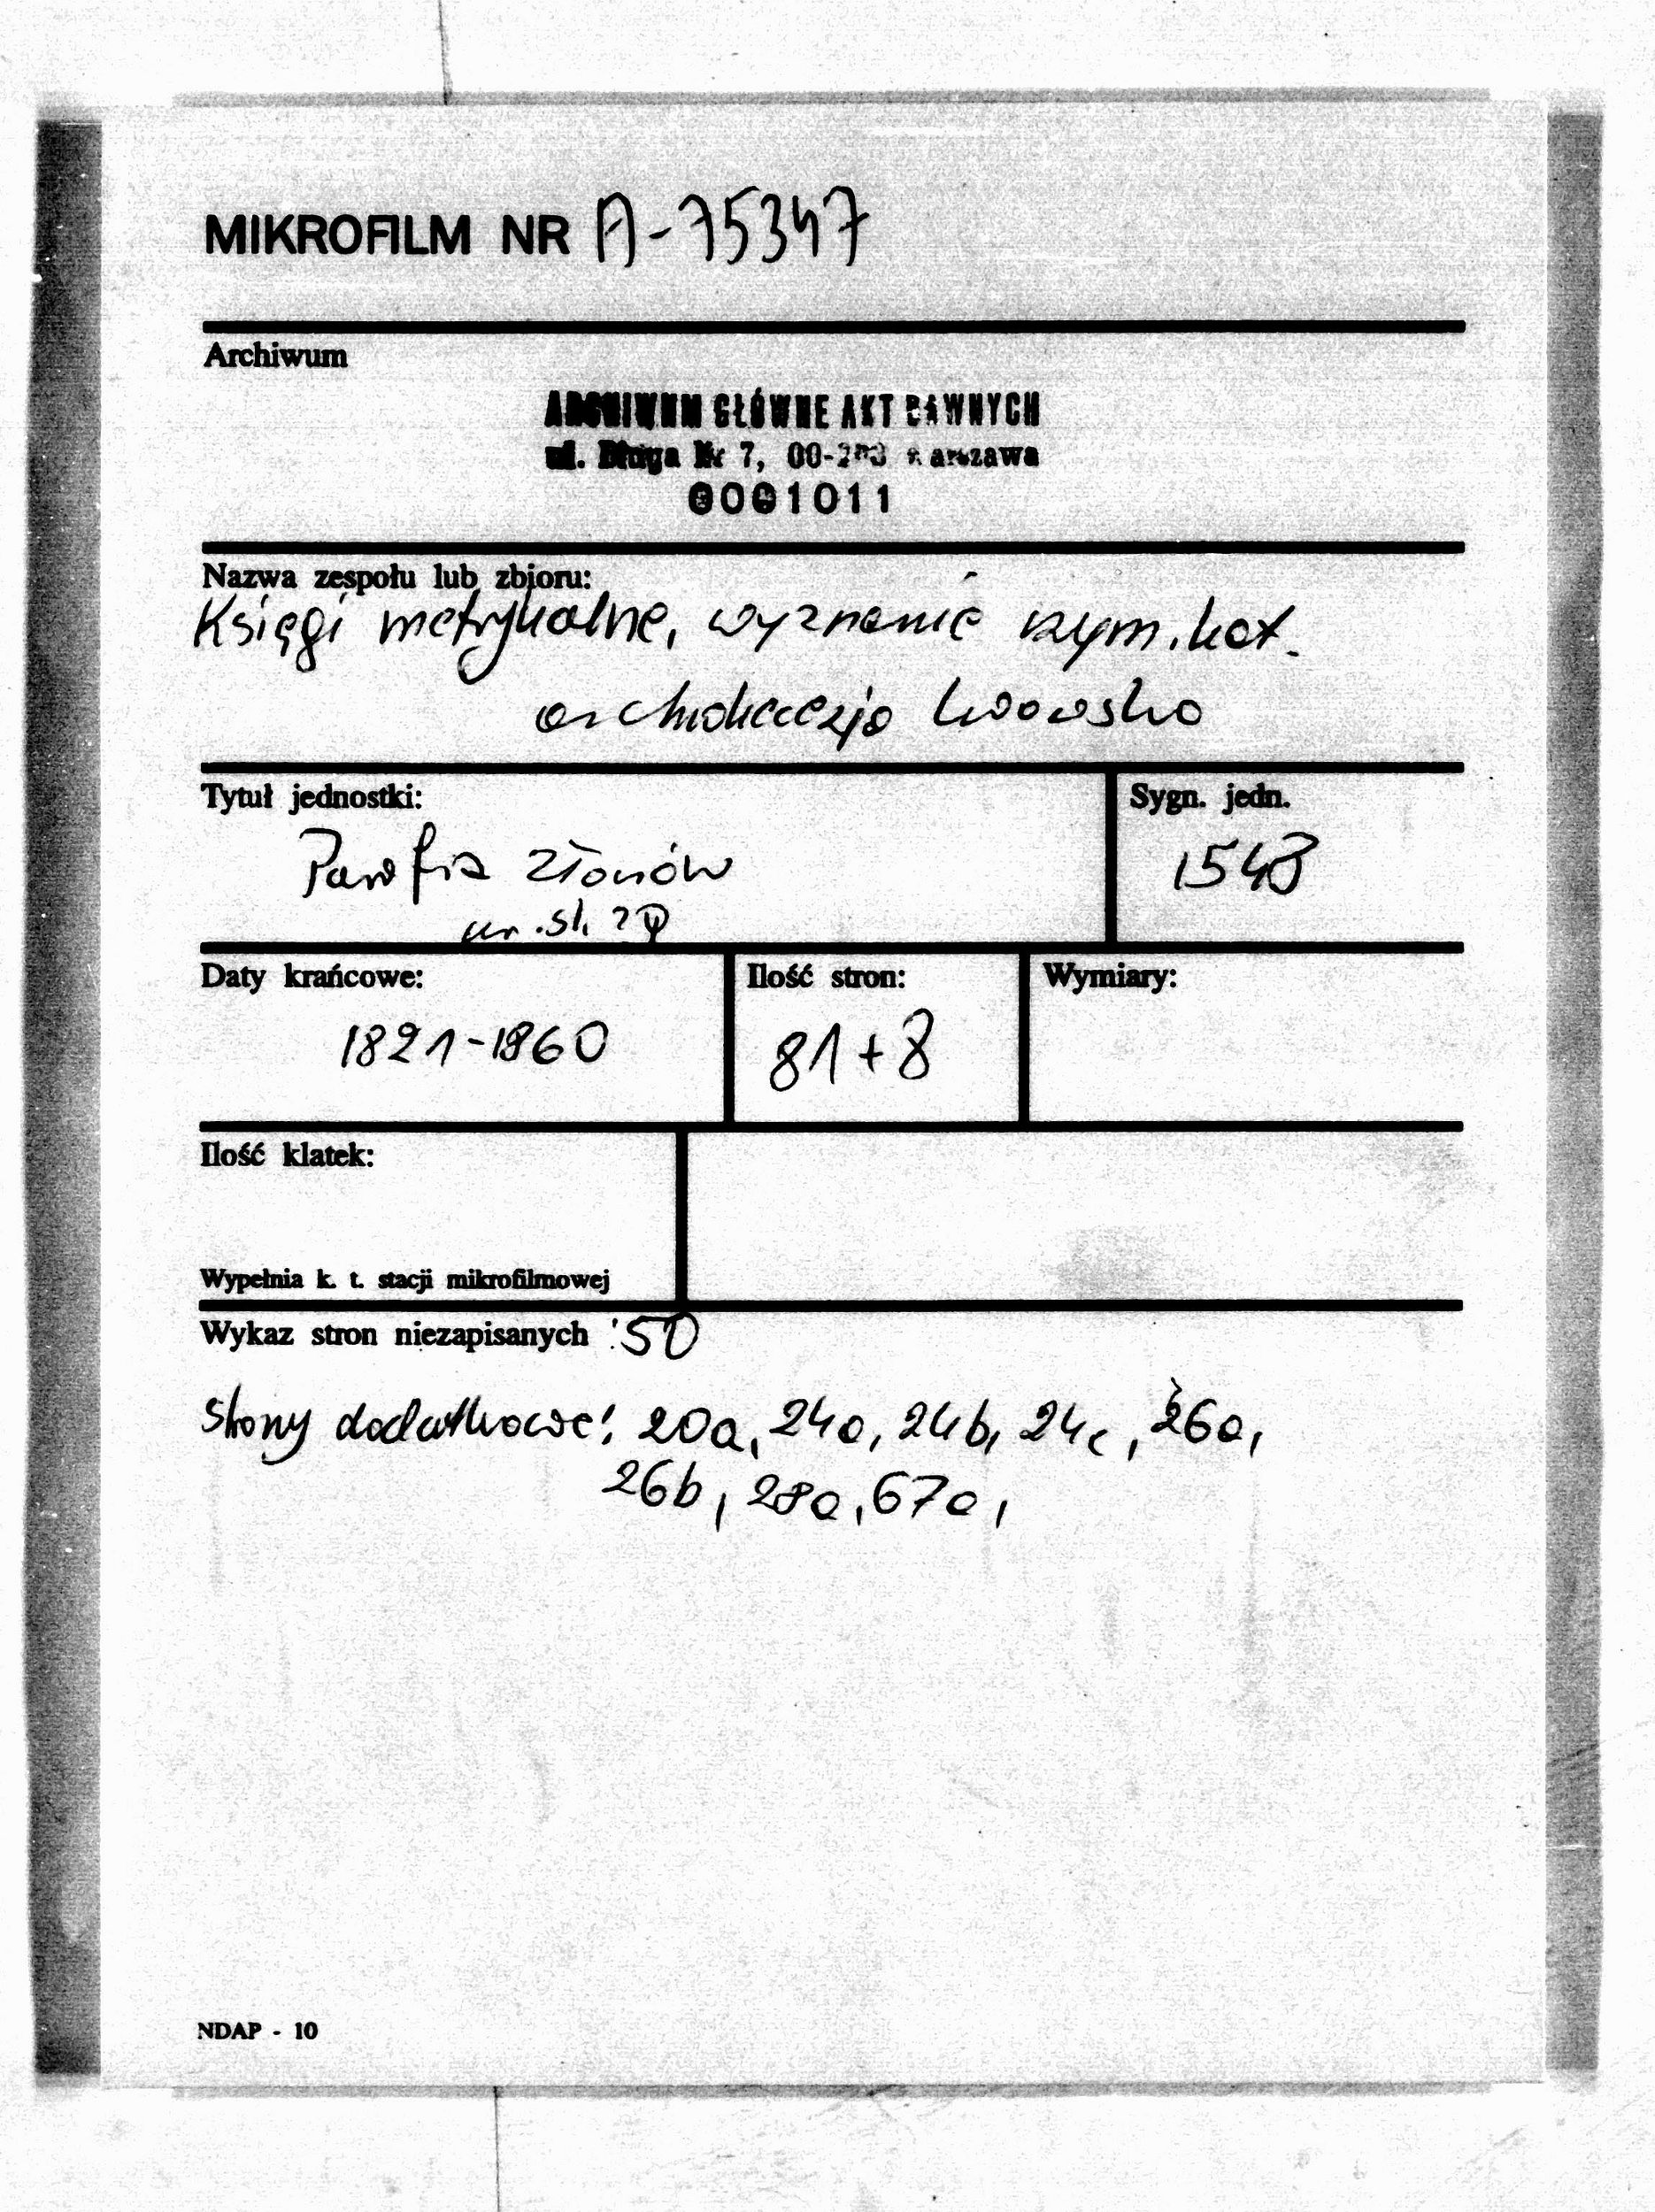 MIKROFILM NR A-75347
Archiwum
ARCHIWUM GŁÓWNE AKT DAWNYCH
ul. Długa Nr 7, 00-263 Warszawa
0001011
Nazwa zespołu lub zbioru:
Księgi metrykalne, wyznanie rzym. kat.
archidiecezja lwowska
Tytuł jednostki:
Sygn. jedn.
Parafia
1543
ur. śl.
Daty krańcowe:
Ilość stron:
Wymiary:
1821-1860
81+8
Ilość klatek:
Wypełnia k. t. stacji mikrofilmowej
Wykaz stron niezapisanych : 50
Strony dodatkowe: 20a, 24a, 24b, 24c, 26a,
26b, 28a, 67a,
NDAP - 10